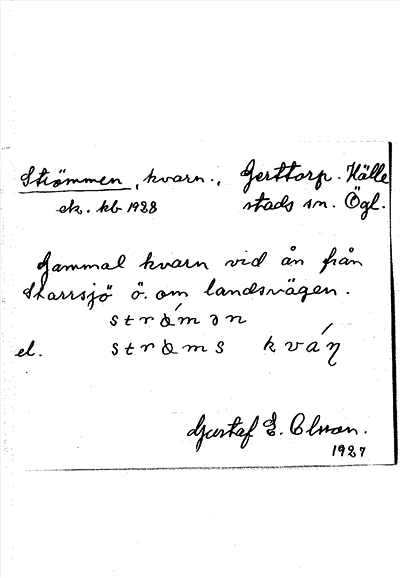 Strömmen, kvarn., Gerttorp. Hälle
ek. kb 1928 stads sn. Ögl.
Gammal kvarn vid ån från
Skarrsjö ö. om landsvägen.
strǿmən
el. strøms kváŋ
Gustaf E. Olsson.
1927